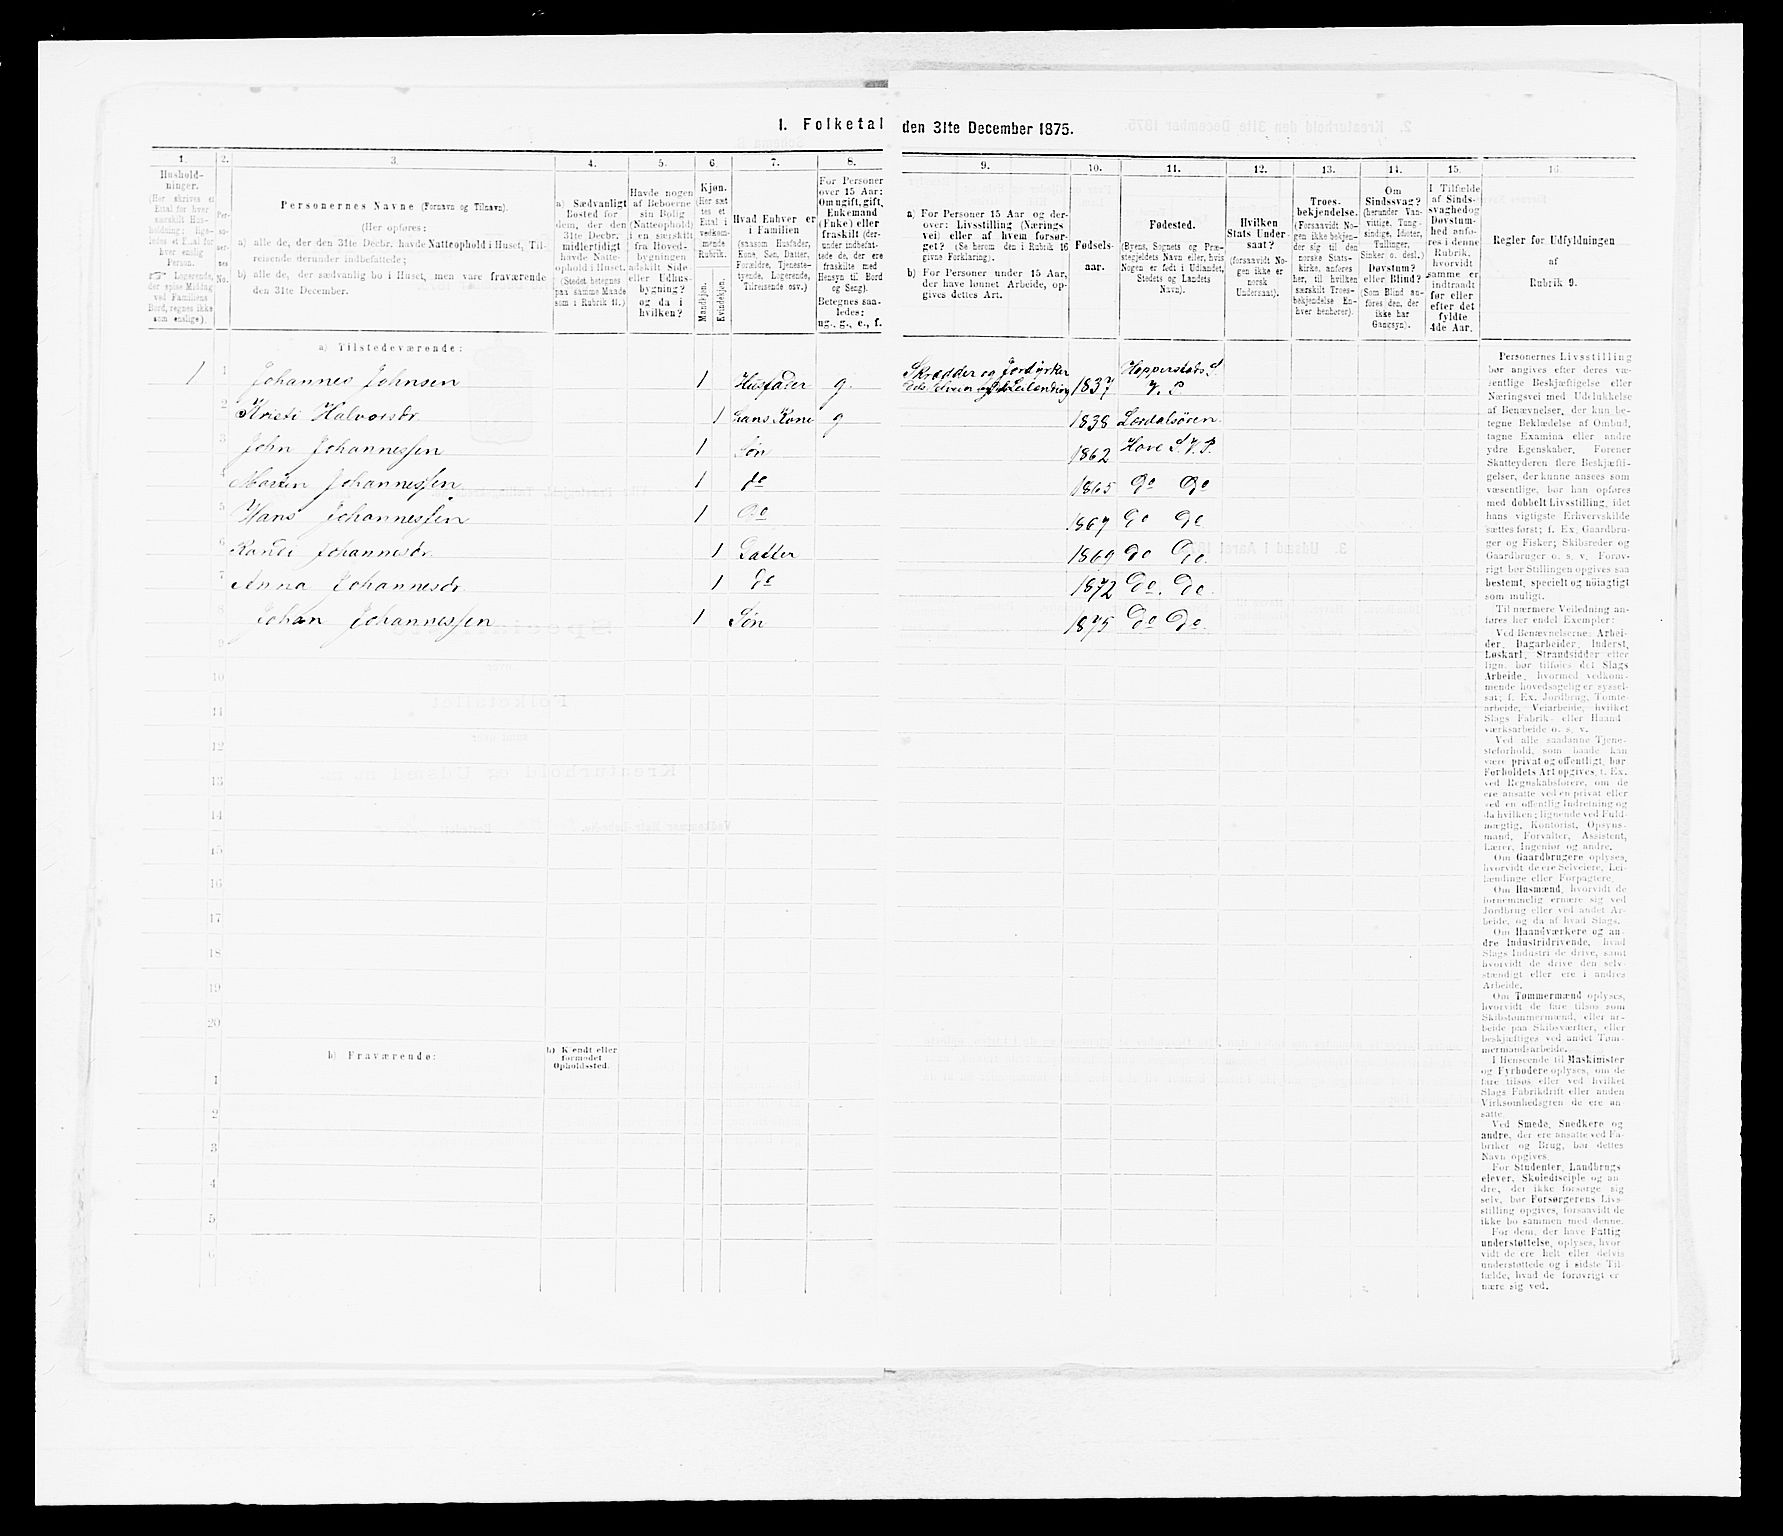 1. Folketal den 31te December 1875.
1.
2.
3.
4.
5.
6.
7.
8.
9.
10.
11.
12.
13.
14.
15.
16.
Hushold-
ninger.
(Her skrives et
Ettal for hver
særskilt Hus-
holdning; lige-
ledes et Ettal for
hver enslig
Person.
Logerende,
der spise Middag
ved Familiens
Bord, regnes ikke
som enslige).
Per-
so-
ner-
nes
No.
Personernes Navne (Fornavn og Tilnavn).
(Her opføres:
a) alle de, der den 31te Decbr. havde Natteophold i Huset, Til-
reisende derunder indbefattede;
b) alle de, der sædvanlig bo i Huset, men vare fraværende
den 31te December.
a) Sædvanligt
Bosted for
dem, der den
31te Decbr.
midlertidigt
havde Natte-
ophold i Huset.
(Stedet betegnes
paa samme Maade
som i Rubrik 11.)
Havde nogen
af Beboerne
sin Bolig
(Natteophold)
i en særskilt
fra Hoved-
bygningen
adskilt Side-
eller Udhus-
bygning?
og da i
hvilken?
Kjøn.
(Her sæt-
tes et
Ettal i
vedkom-
mende
Rubrik.
Mandkjøn.
Kvindekjøn.
Hvad Enhver er
i Familien
(saasom Husfader,
Kone, Søn, Datter,
Forældre, Tjeneste-
tyende, Logerende,
Tilreisende osv.)
For Personer
over 15 Aar:
Om ugift, gift,
Enkemand
(Enke) eller
fraskilt (der-
under indbefat-
tede de, der ere
fraskilte med
Hensyn til Bord
og Seng).
Betegnes saa-
ledes:
ug., g., e., f.
a) For Personer 15 Aar og der-
over: Livsstilling (Nærings-
vei) eller af hvem forsør-
get? (Se herom den i Rubrik 16
givne Forklaring).
b) For Personer under 15 Aar,
der have lønnet Arbeide, op-
gives dettes Art.
Fødsels-
aar.
Fødested.
(Byens, Sognets og Præ-
stegjeldets Navn eller, hvis
Nogen er født i Udlandet,
Stedets og Landets
Navn).
Hvilken
Stats Under
saat?
(forsaavidt No-
gen ikke er
norsk
Undersaat).
Troes-
bekjendelse.
(Forsaavidt No-
gen ikke bekjen-
der sig til den
norske Stats-
kirke, anføres
her, til hvilken
særskilt Troes-
bekjendelse En-
hver henhører).
Om
Sindssvag?
(herunder Van-
vittige, Tung-
sindige, Idioter,
Tullinger,
Sinker o. desl.)
Døvstum?
eller Blind?
(Som Blind an-
føres den, der
ikke har
Gangsyn).
I Tilfælde
af Sinds-
svaghed og
Døvstum-
hed anfø-
res i denne
Rubrik,
hvorvidt
samme er
indtraadt
før eller
efter det
fyldte
4de Aar.
Regler for Udfyldningen
af
Rubrik 9.
a) Tilstedeværende:
1 1 Johannes Johnsen 1 Husfader g. Skrædder og Jordyrker 1837 Hopperstads S.
V. P
2 Kristi Halvorsdr. 1 hans Kone g 1838 Lærdalsören.
3 John Johannessen 1 Søn 1862 Hove S. V. P.
4 Johannessen 1 do 1865 do do
5 Hans Johannessen 1 do 1867 do do
6 Randi Johannesdr. 1 Datter 1869 do do.
7 Anna Johannesdr. 1 do 1872 do. do.
8 Johan Johannessen 1 Søn 1875 do do.
9
10
11
12
13
14
15
16
17
18
19
20
b) Fraværende:
b) Kjendt eller
formodet
Opholdssted.
1
2
3
4
5
6
Personernes Livsstilling
bør angives efter deres væ-
sentlige Beskjæftigelse eller
Næringsvei med Udelukkelse
af Benævnelser, der kun be-
tegne Beklædelse af Ombud,
tagne Examina eller andre
ydre Egenskaber. Forener
Skatteyderen flere Beskjæfti-
gelser, der kunne ansees som
væsentlige, bør han opføres
med dobbelt Livsstilling, idet
hans vigtigste Erhvervskilde
sættes først; f. Ex. Gaardbru-
ger og Fisker; Skibsreder og
Gaardbruger o. s. v. Forøv-
rigt bør Stillingen opgives saa
bestemt, specielt og nøiagtigt
som muligt.
Til nærmere Veiledning an-
føres her endel Exempler:
Ved Benævnelserne: Arbei-
der, Dagarbeider, Inderst,
Løskarl, Strandsidder eller
lign. bør tilføies det Slags
Arbeide, hvormed vedkom-
mende hovedsagelig er syssel-
sat; f. Ex. Jordbrug, Tomte-
arbeide, Veiarbeide, hvilket
Slags Fabrik- eller Haand-
værksarbeide o. s. v.
Ved alle saadanne Tjene-
steforhold, som baade kan
være privat og offentligt, bør
Forholdets Art opgives, f. Ex.
ved Regnskabsførere, om de
ere ansatte ved en privat eller
ved en offentlig Indretning og
da hvilken; lignende ved Fuld-
mægtig, Kontorist, Opsyns-
mand, Forvalter, Assistent,
Lærer, Ingeniør og andre.
Om Gaardbrugere oplyses,
hvorvidt de ere Selveiere, Lei-
lændinge eller Forpagtere.
Om Husmænd, hvorvidt de
fornemmelig ernære sig ved
Jordbrug eller ved andet Ar-
beide, og da af hvad Slags.
Om Haandværkere og an-
dre Industridrivende, hvad
Slags Industri de drive, samt
hvorvidt de drive den selv-
stændigt eller ere i andres
Arbeide.
Om Tømmermænd oplyses,
hvorvidt de fare tilsøs som
Skibstømmermænd, eller ar-
beide paa Skibsværfter, eller
beskjæftiges ved andet Tøm-
mermandsarbeide.
I Henseende til Maskinister
og Fyrbødere oplyses, om de
fare tilsøs eller ved hvilket
Slags Fabrikdrift eller anden
Virksomhedsgren de ere an-
satte.
Ved Smede, Snedkere og
andre, der ere ansatte ved Fa-
briker og Brug, bør dettes
Navn opgives.
For Studenter, Landbrugs-
elever, Skoledisciple og an-
dre, der ikke forsørge sig
selv, bør Forsørgerens Livs-
stilling opgives, forsaavidt de
ikke bo sammen med denne.
For dem, der have Fattig-
understøttelse, oplyses, hvor-
vidt de ere helt eller delvis
understøttede og i sidste Til-
fælde, hvad de forøvrigt er-
nære sig ved.